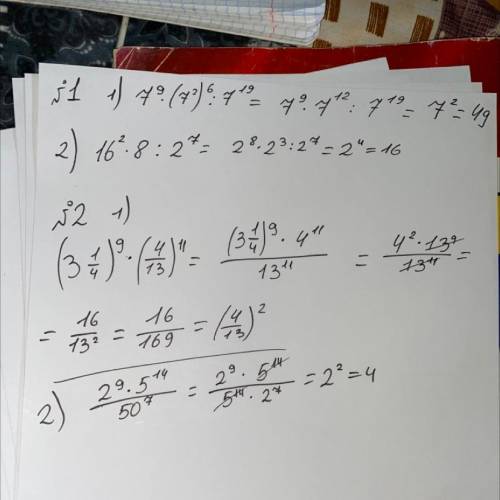 №1 1) 7⁹·(7²)⁶:7¹⁹= 7⁹·7¹²:7¹⁹= 7²=49
2) 16²·8:2⁷= 2⁸·2³:2⁷=2⁴=16
№2 1)
(3 1/4)⁹·(4/13)¹¹= (3 1/4)⁹·4¹¹/13¹¹ = 4²·13⁹/13¹¹=
= 16/13² = 16/169 = (4/13)²
2) 2⁹·5¹⁴/50⁷ = 2⁹·5¹⁴/5¹⁴·2⁷ =2²=4